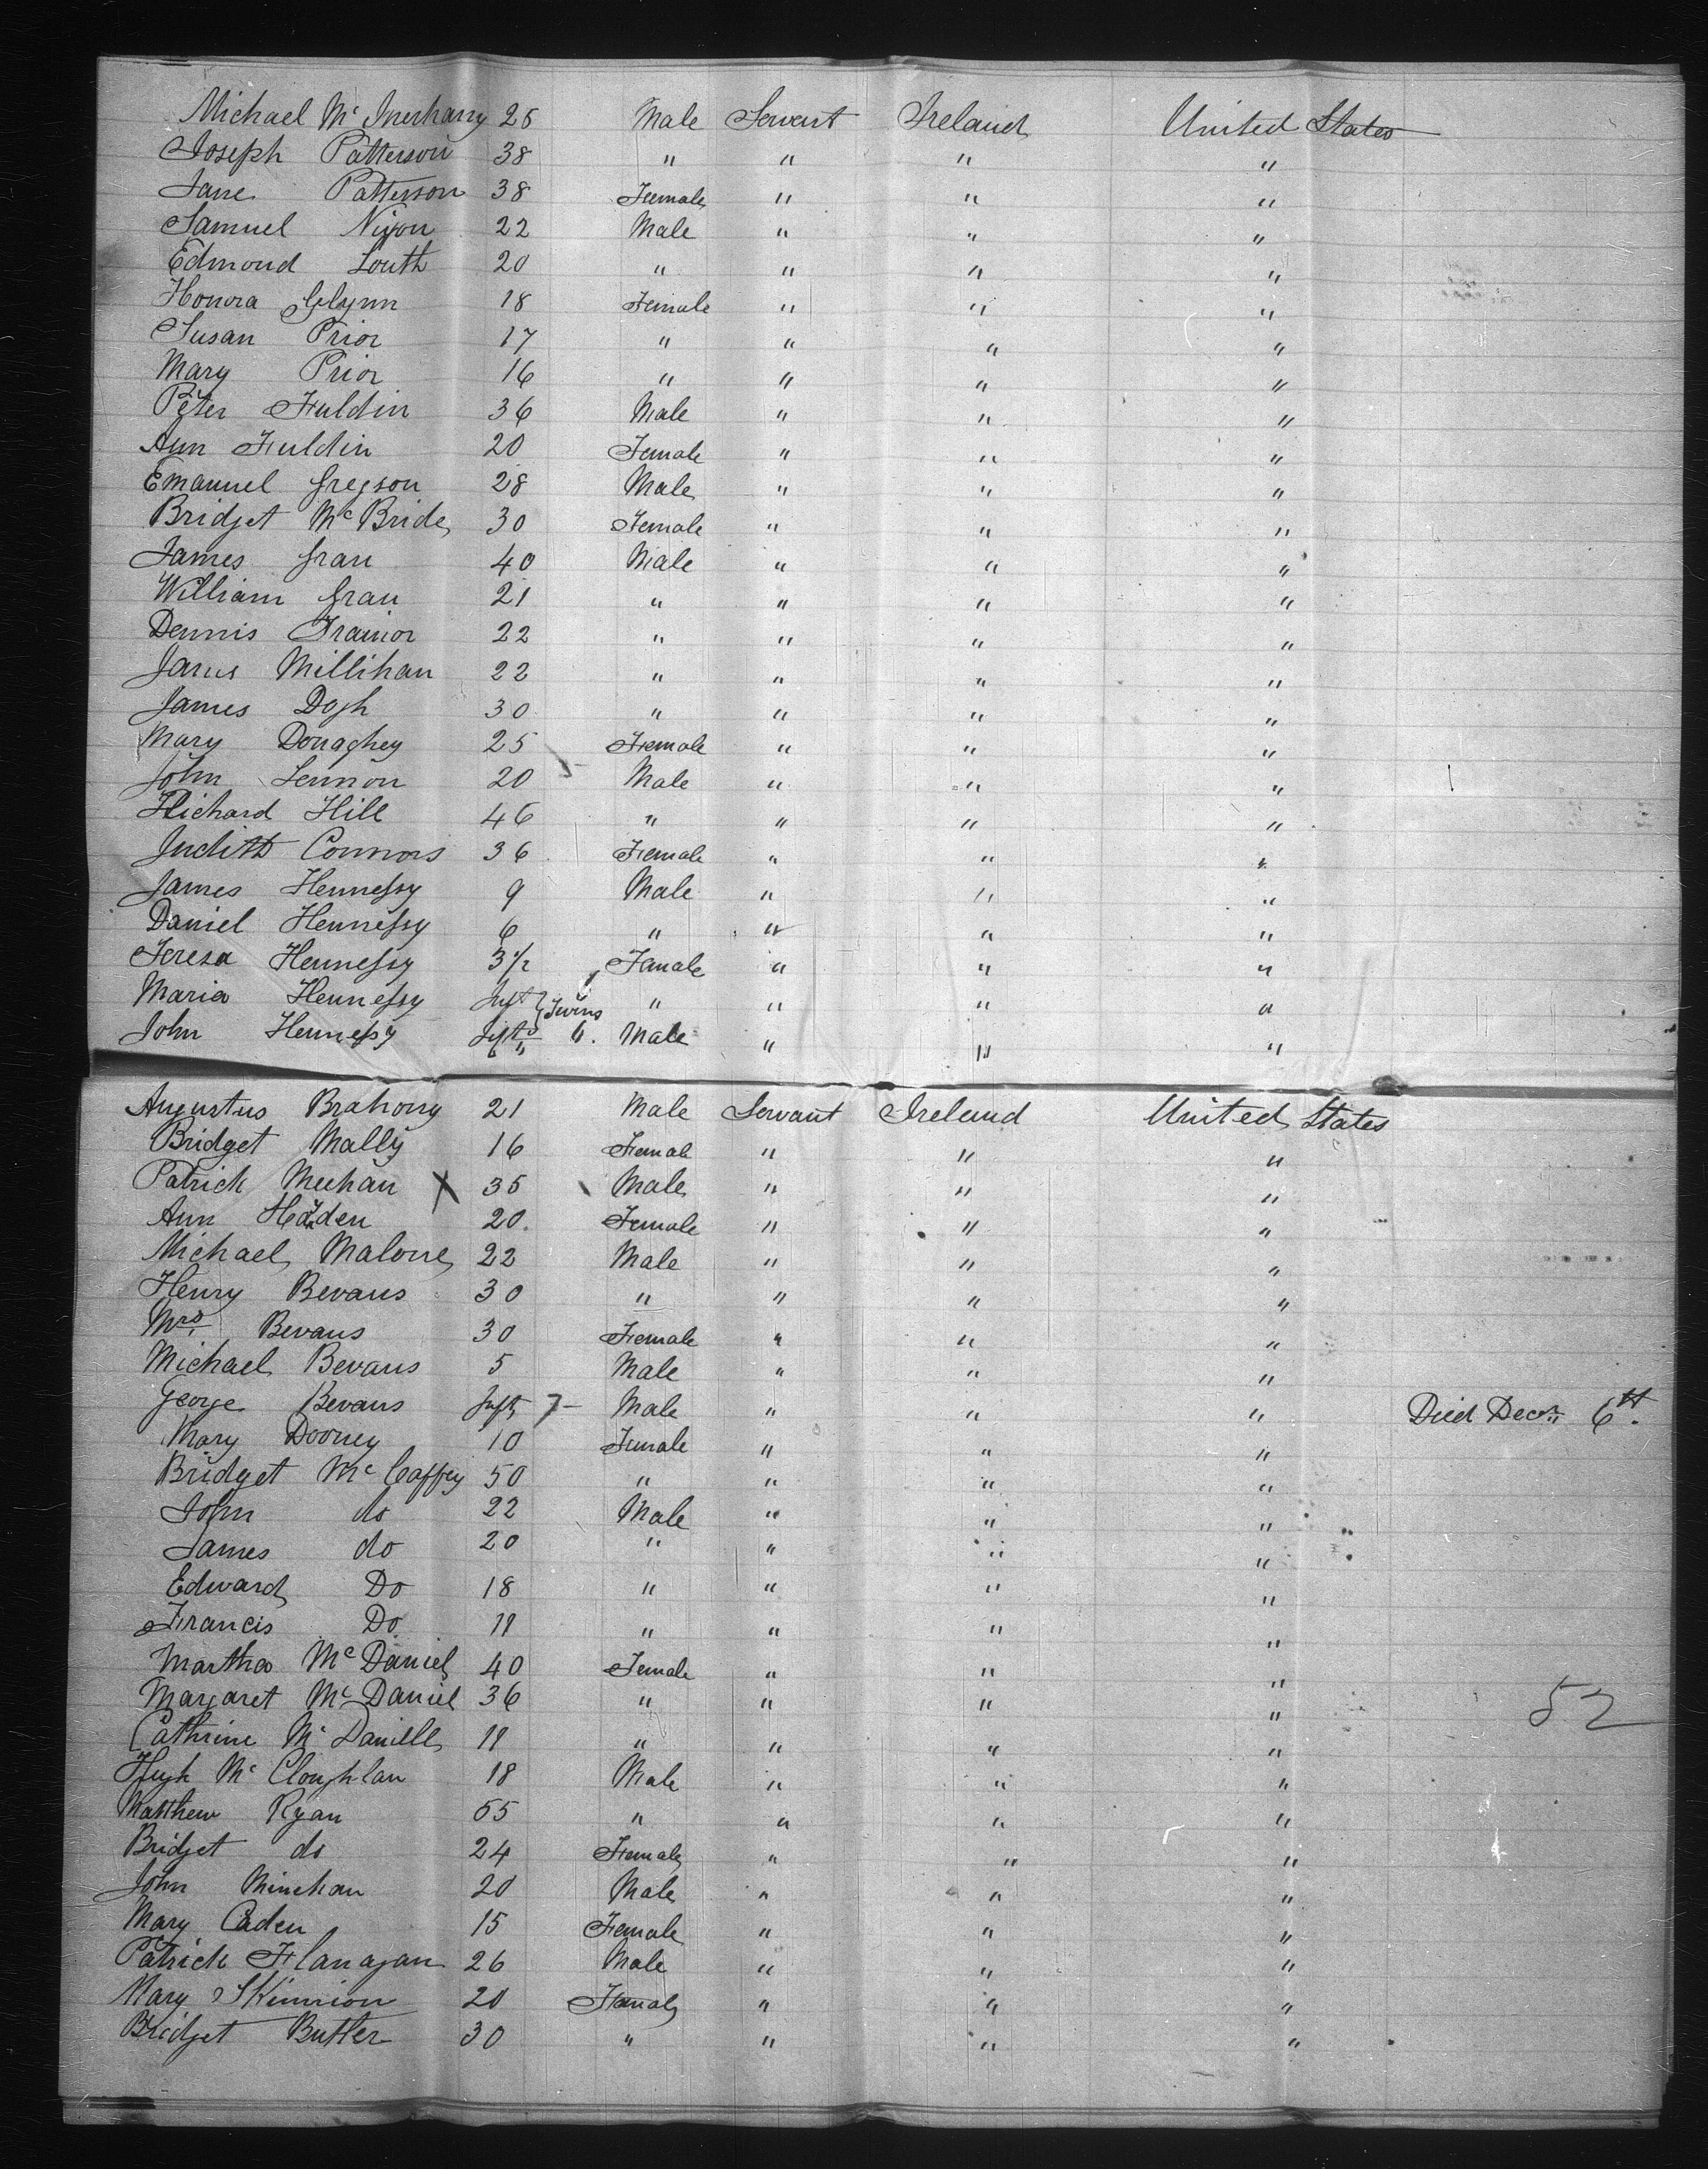 Michael Mc Inerhany 25 Male Servant Ireland United States
Joseph Patterson 38 " " " "
Jane Patterson 38 Female " " "
Samuel Nixon 22 Male " " "
Edmond Louth 20 " " " "
Honora Glynn 18 Female " " "
Susan Prior 17 " " " "
Mary Prior 16 " " " "
Peter Fuldin 36 Male " " "
Ann Fuldin 20 Female " " "
Emanuel Gregson 28 Male " " "
Bridget Mc Bride 30 Female " " "
James Grau 40 Male " " "
William Grau 21 " " " "
Dennis Trainor 22 " " " "
James Millihan 22 " " " "
James Dogh 30 " " " "
Mary Donaghey 25 Female " " "
John Lennon 20 Male " " "
Richard Hill 46 " " " "
Judith Connors 36 Female " " "
James Hennessy 9 Male " " "
Daniel Hennessy 6 " " " "
Teresa Hennessy 3 1/2 Female " " "
Maria Hennessy Inft } Twins " " " "
John Hennessy Inft 6. Male " " "
Augustus Brahony 21 Male Servant Ireland United States
Bridget Mally 16 Female " " "
Patrick Meehan X 35 Male " " "
Ann Hayden 20 Female " " "
Michael Malone 22 Male " " "
Henry Bevans 30 " " " "
Mrs. Bevans 30 Female " " "
Michael Bevans 5 Male " " "
George Bevans Inft 7- Male " " " Died Decr. 6th.
Mary Dooney 10 Female " " "
Bridget Mc Caffey 50 " " " "
John do 22 Male " " "
James do 20 " " " "
Edward Do 18 " " " "
Francis Do 11 " " " "
Martha Mc Daniel 40 Female " " "
Margaret Mc Daniel 36 " " " "
52
Cathrine Mc Daniell 11 " " " "
Hugh Mc Cloughlan 18 Male " " "
Matthew Ryan 55 " " " "
Bridget do 24 Female " " "
John Minehan 20 Male " " "
Mary Caden 15 Female " " "
Patrick Flanagan 26 Male " " "
Mary Skinnion 20 Female " " "
Bridget Butler 30 " " " "